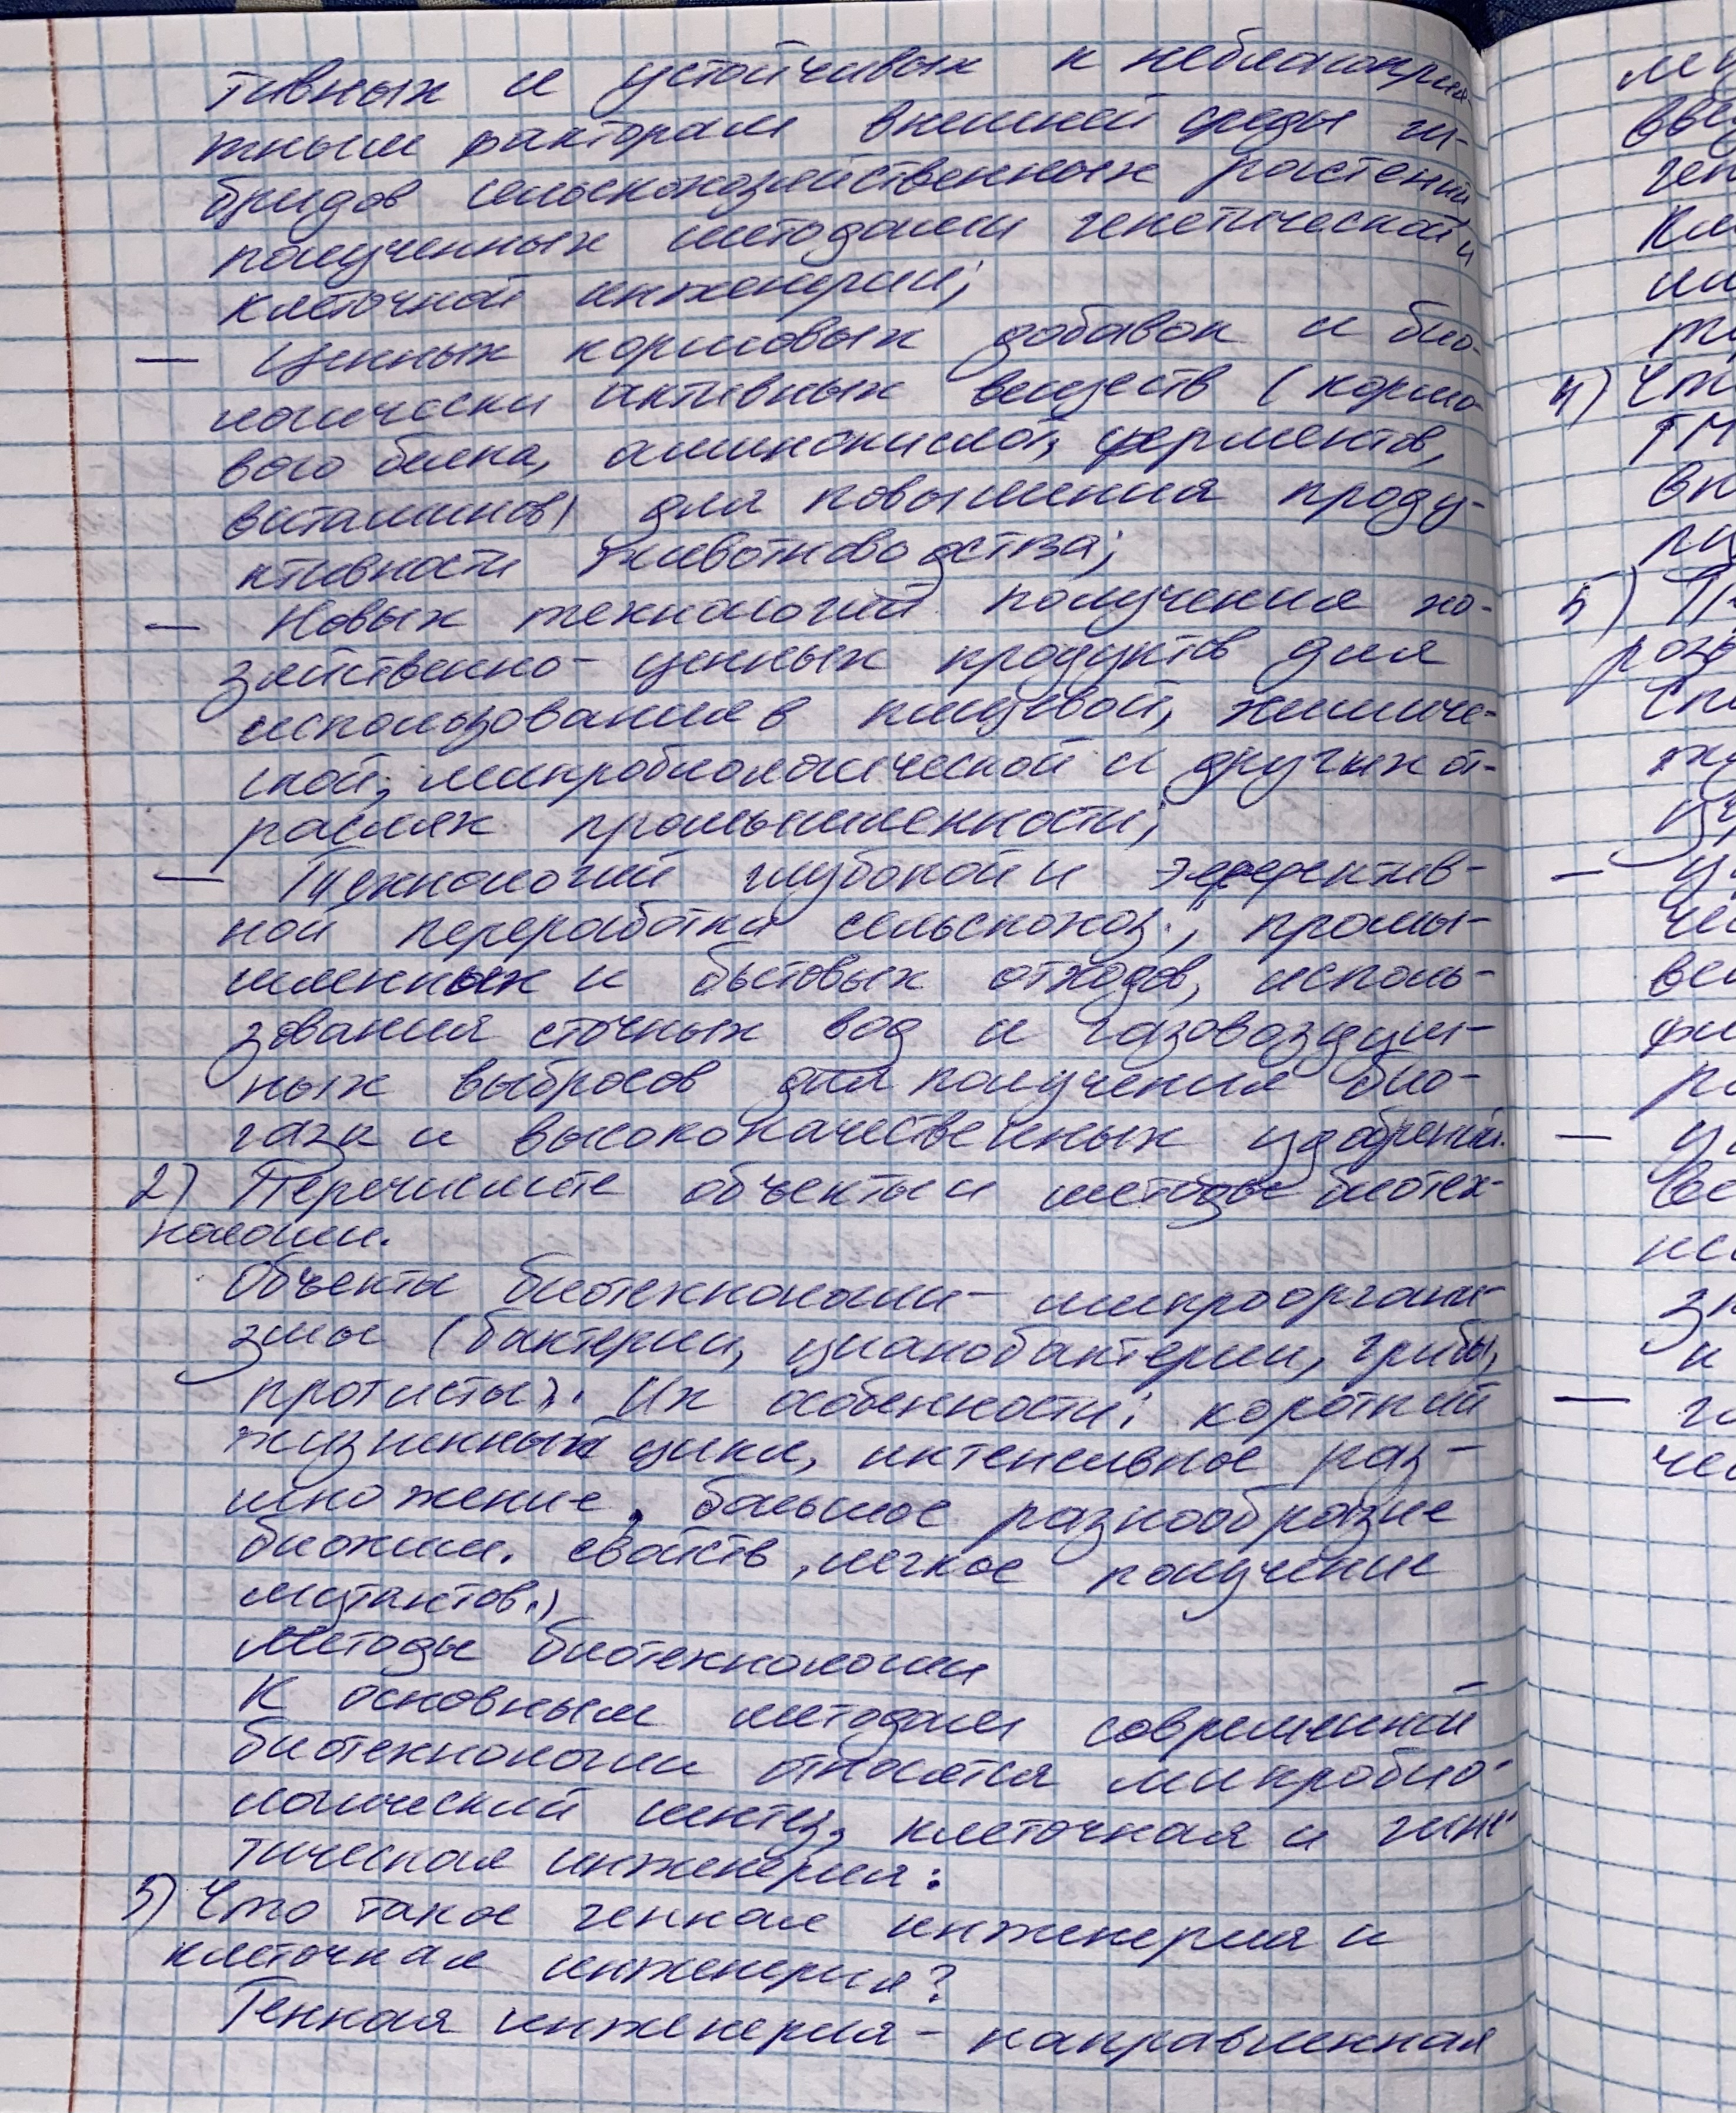 тивных и устойчивых к неблагоприя-
тным факторам внешней среды ги-
бридов сельскохозяйственных растений
полученных методами генетической и
клеточной инженерии;
— Ценных кормовых добавок и био-
логически активных веществ (кормо-
вого белка, аминокислот, ферментов,
витаминов) для повышения проду-
ктивности животноводства;
— Новых технологий получения хо-
зяйственно-ценных продуктов для
использования в пищевой, химиче-
ской, микробиологической и других от-
раслях промышленности;
— Технологий глубокой и эффектив-
ной переработки сельскохоз., промы-
шленных и бытовых отходов, исполь-
зования сточных вод и газовоздуш-
ных выбросов для получения био-
газа и высококачественных удобрений.
2) Перечислите объекты и методы биотех-
нологии.
Объекты биотехнологии- микрооргани-
змы (бактерии, цианобактерии, грибы,
протисты). Их особенности: короткий
жизненный цикл, интенсивное раз-
множение, большое разнообразие
биохим. свойств, легкое получение
мутантов.)
Методы биотехнологии
К основным методам современной
биотехнологии относятся микробио-
логический синтез, клеточная и гене
тическая инженерия:
3) Что такое генная инженерия и
клеточная инженерия?
Генная инженерия- направленная
4)
5)